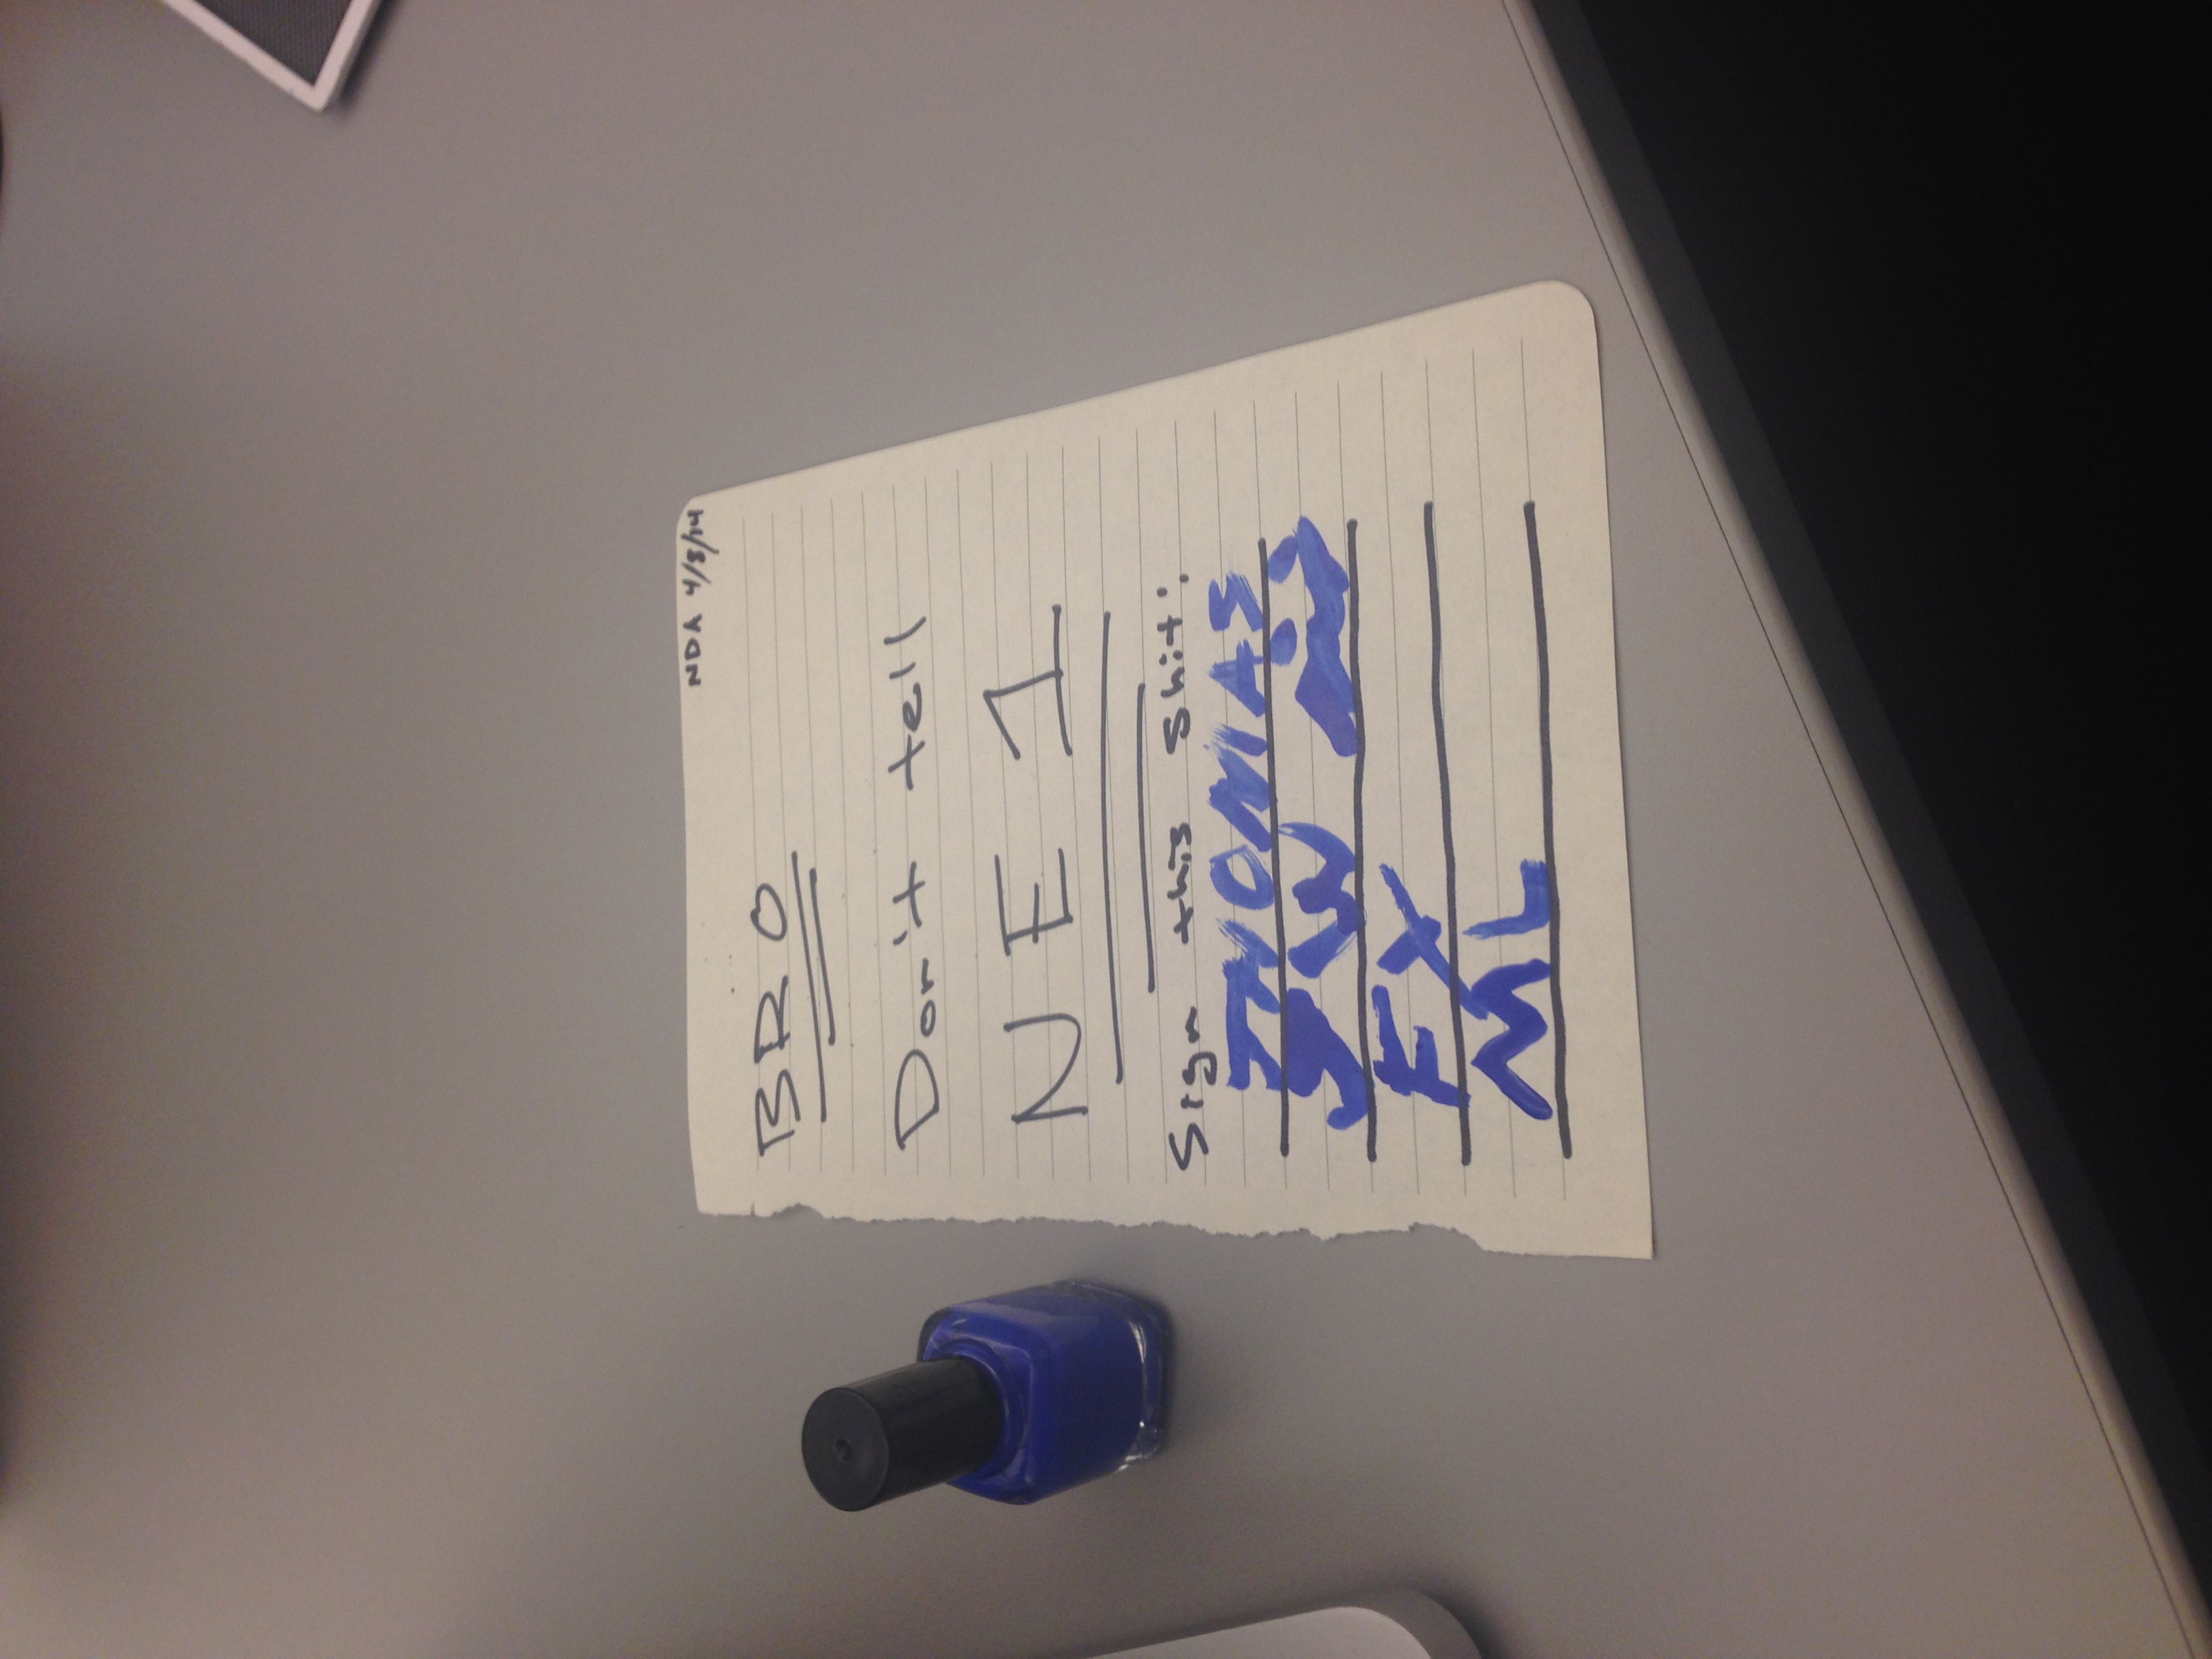 NDA 4/8/14
BRO
Don't tell
NE1
Sign this shit:
THOMAS
JW
FX
ML